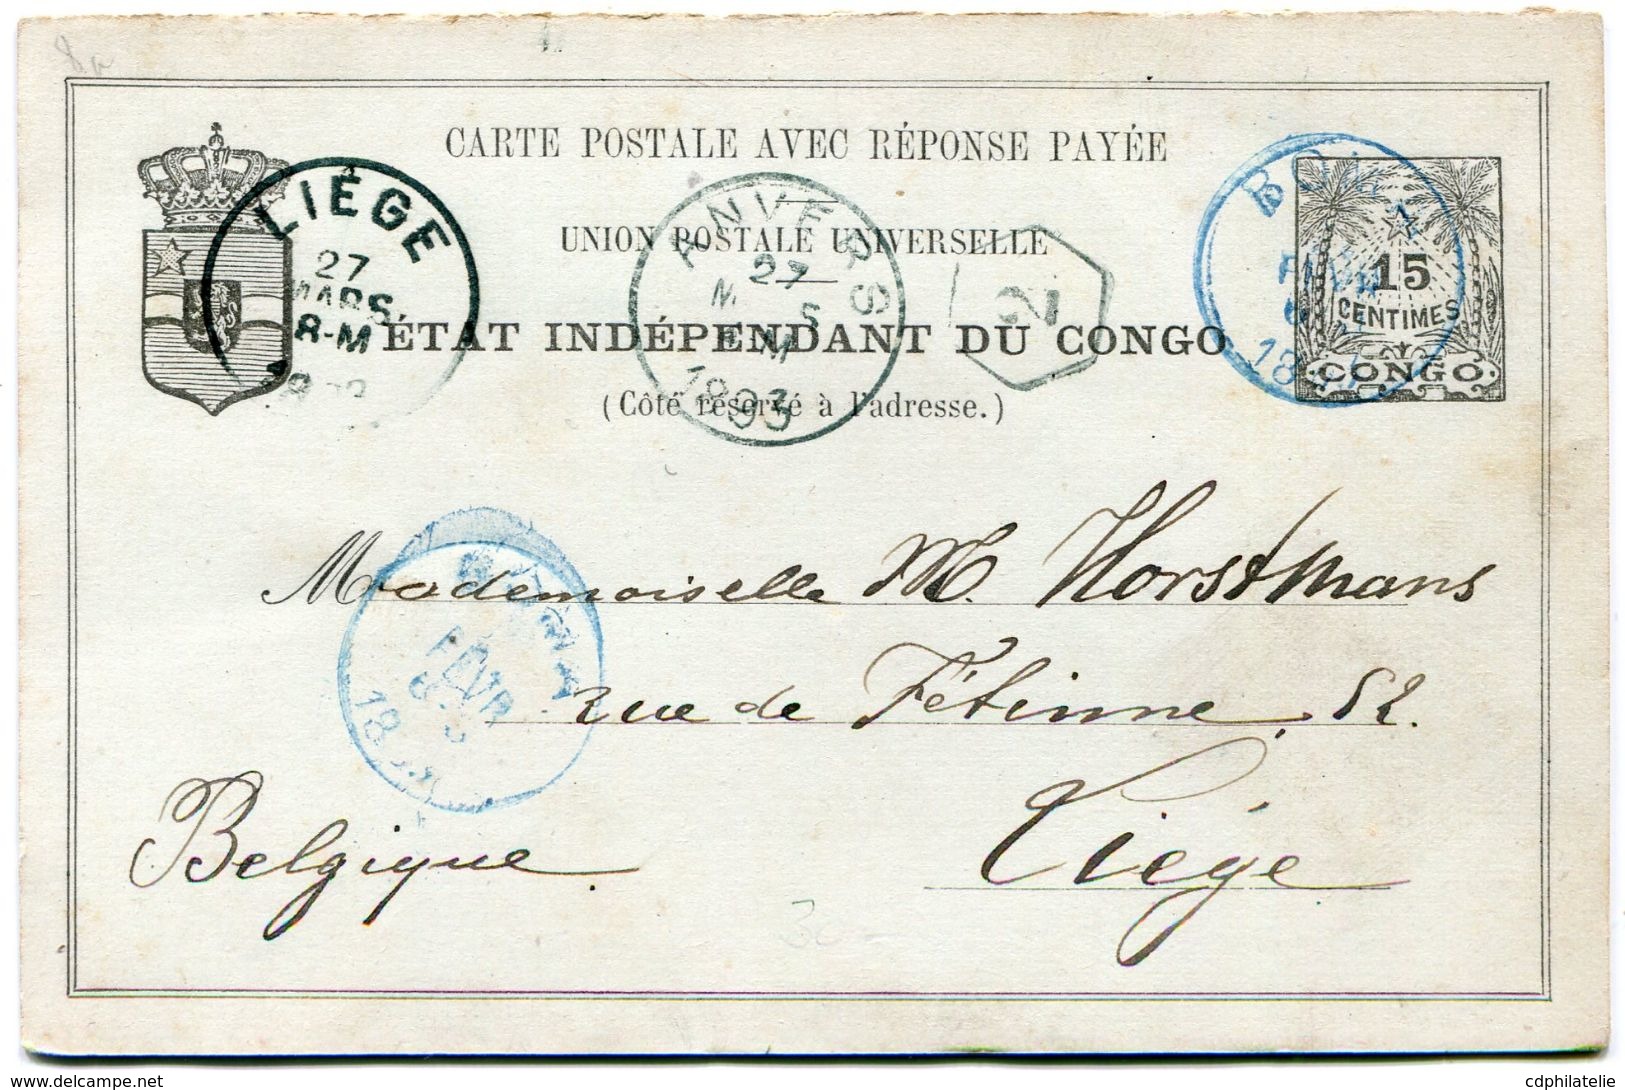 8a
CARTE POSTALE AVEC RÉPONSE PAYÉE
UNION POSTALE UNIVERSELLE
ÉTAT INDÉPENDANT DU CONGO
(Côté réservé à l'adresse.)
LIÉGE
27
MARS
8-M
ANVERS
27
M S
M
1893
2
BO
15
CENTIMES
CONGO
Mademoiselle M. Horstmans
FÉVR
18
rue de Fétinne, 52.
Liége
Belgique.
delcampe.net
cdphilatelie